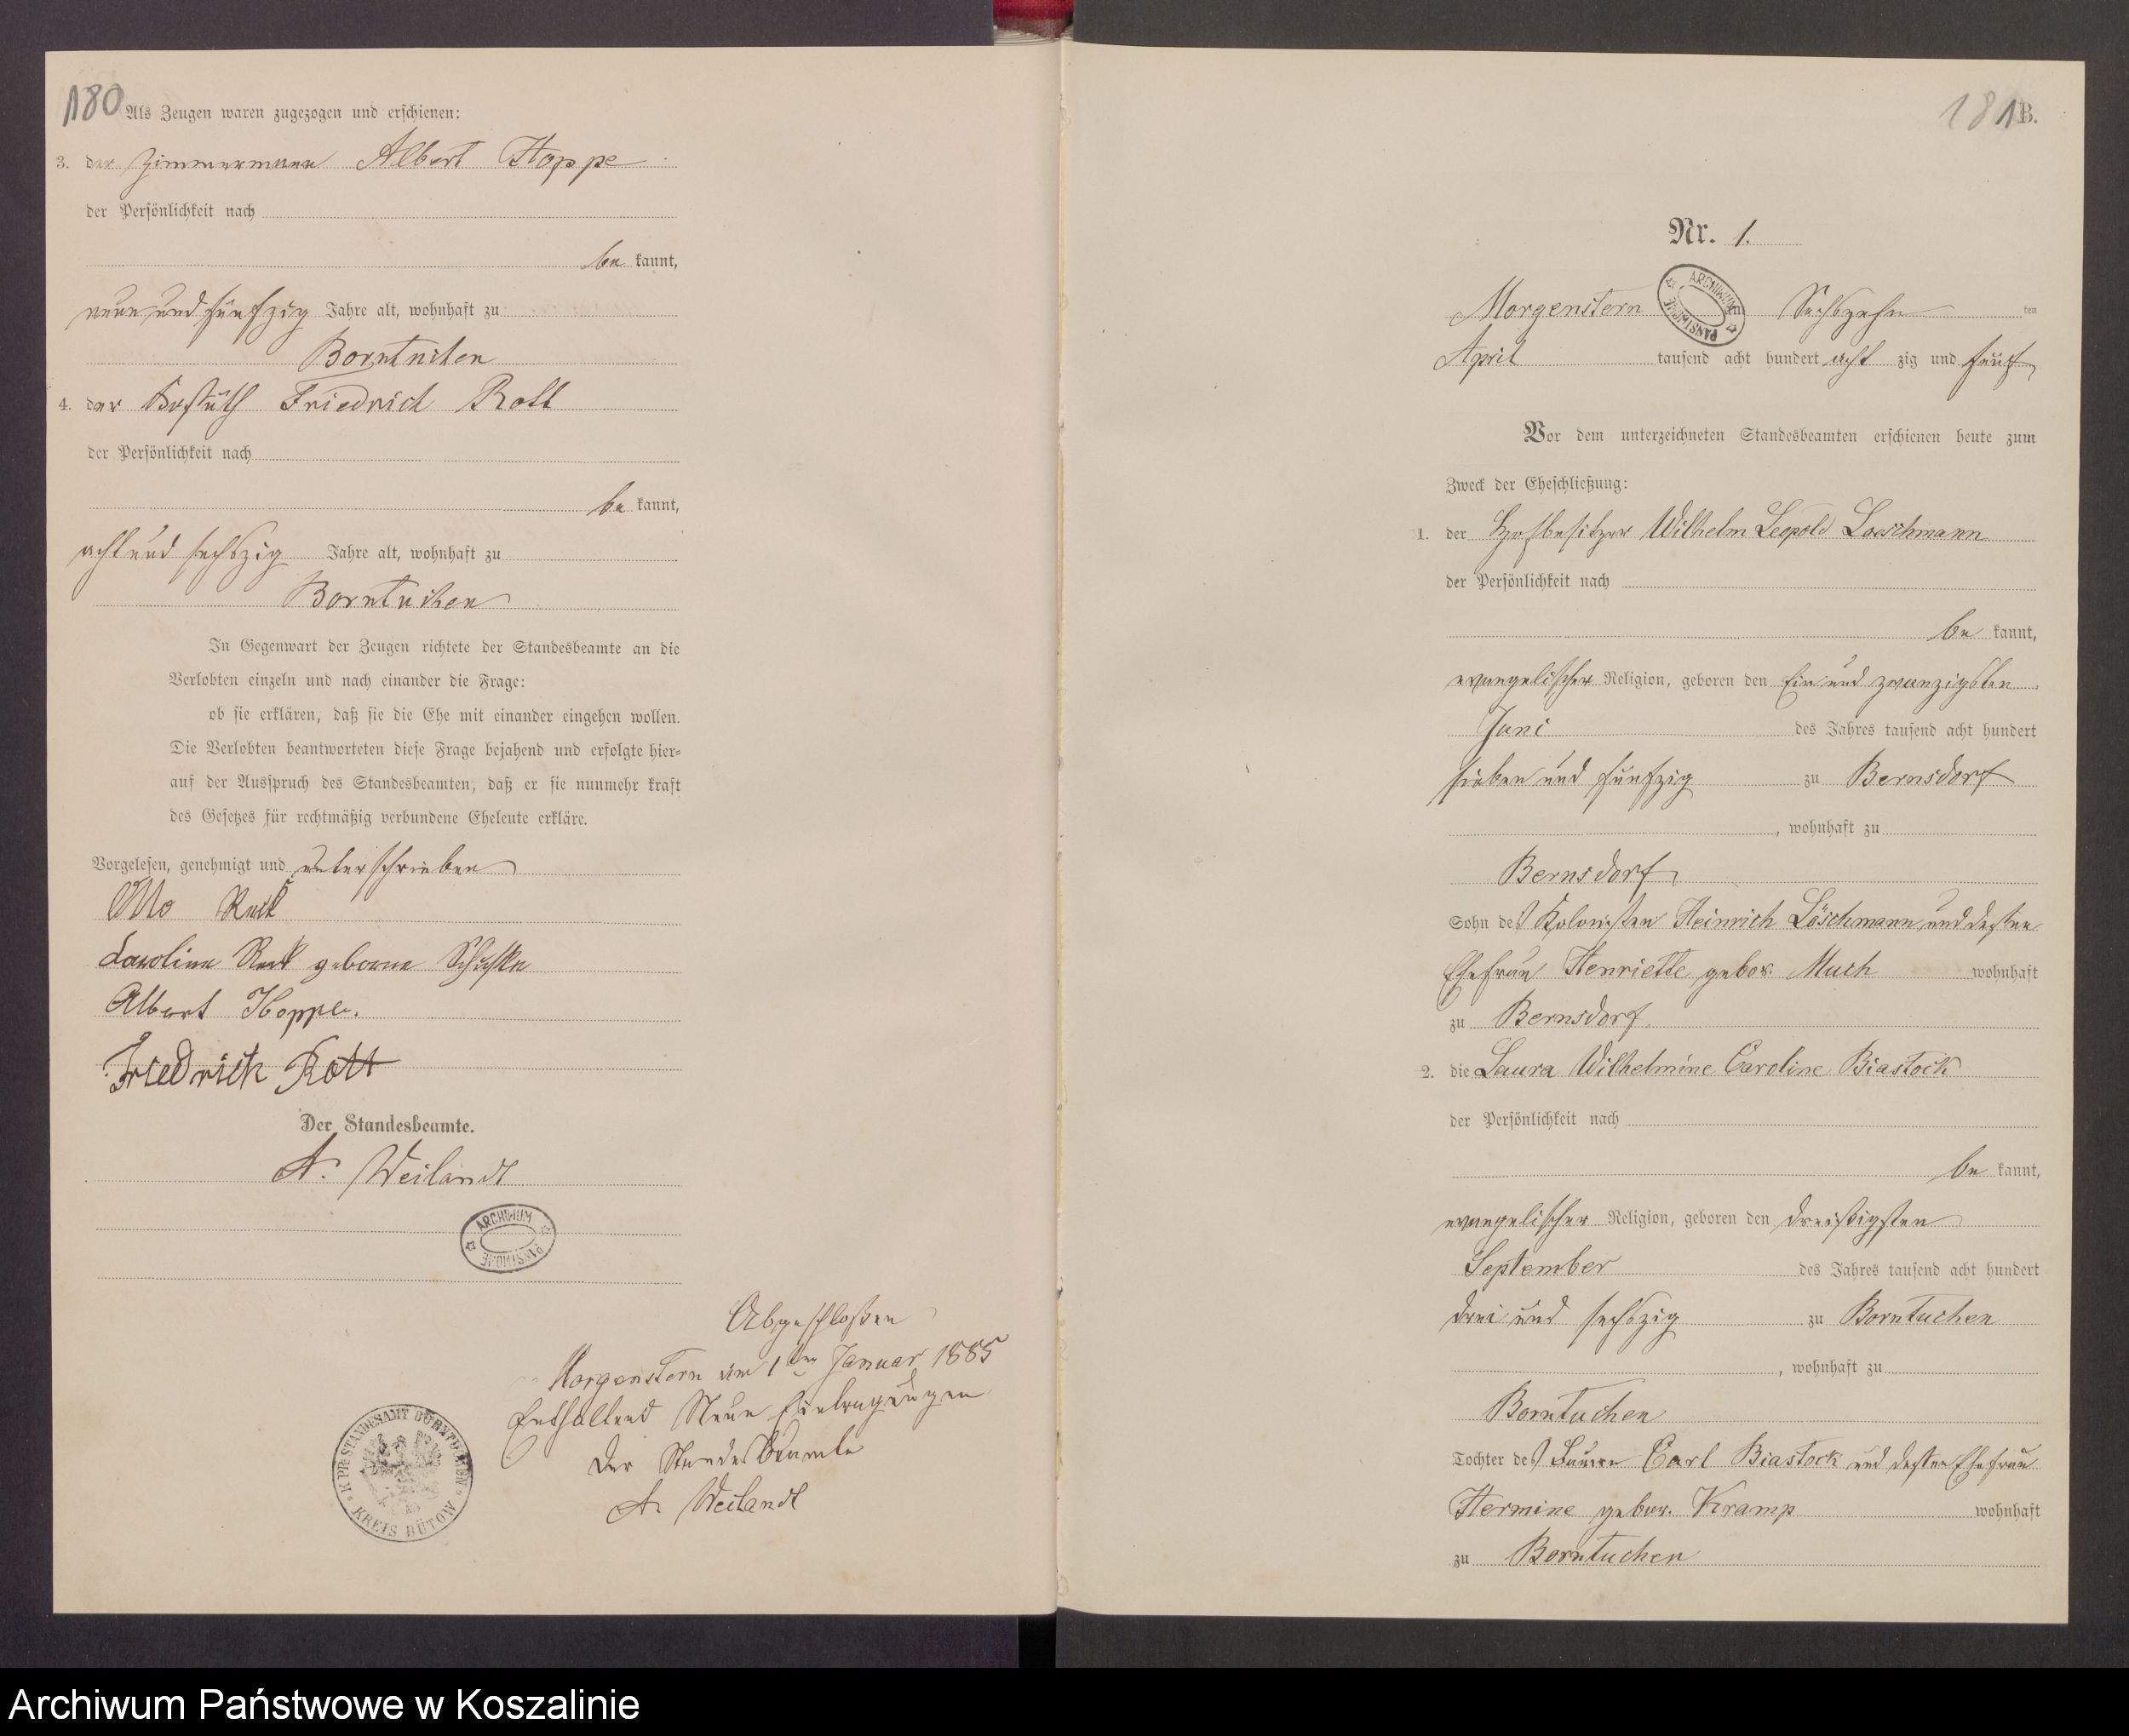 180
Als Zeugen waren zugezogen und erschienen:
3. der Zimmermann Albert Hoppe
der Persönlichkeit nach
be kannt,
neun und fünfzig Jahre alt, wohnhaft zu
Borntuchen
4. der Friedrich Rott
der Persönlichkeit nach
be kannt,
acht und sechszig Jahre alt, wohnhaft zu
Borntuchen
In Gegenwart der Zeugen richtete der Standesbeamte an die
Verlobten einzeln und nach einander die Frage:
ob sie erklären, daß sie die Ehe mit einander eingehen wollen.
Die Verlobten beantworteten diese Frage bejahend und erfolgte hier=
auf der Ausspruch des Standesbeamten, daß er sie nunmehr kraft
des Gesetzes für rechtmäßig verbundene Eheleute erkläre.
Vorgelesen, genehmigt und unterschrieben
Otto
Caroline geborne
Albert Hoppe.
Friedrich Rott
Der Standesbeamte.
A. Weilandt
ARCHIWUM PAŃSTWOWE
Abgeschloßen
Morgenstern am 1ten Januar 1885
Enthaltend Neun Eintragungen
Der Standesbeamte
A. Weilandt
K. PR. STANDESAMT BORNTUCHEN
KREIS BÜTOW
181
B.
Nr. 1.
Morgenstern am Sechszehn ten
ARCHIWUM PAŃSTWOWE
April tausend acht hundert acht zig und fünf
Vor dem unterzeichneten Standesbeamten erschienen heute zum
Zweck der Eheschließung:
1. der Hofbesitzer Wilhelm Leopold Loeschmann
der Persönlichkeit nach
be kannt,
evangelischer Religion, geboren den Ein und zwanzigsten
Juni des Jahres tausend acht hundert
sieben und fünfzig zu Bernsdorf
, wohnhaft zu
Bernsdorf
Sohn des Kolonisten Heinrich Löschmann und dessen
Ehefrau Henriette gebor. Much wohnhaft
zu Bernsdorf.
2. die Laura Wilhelmine Caroline Biastock
der Persönlichkeit nach
be kannt,
evangelischer Religion, geboren den dreißigsten
September des Jahres tausend acht hundert
drei und sechszig zu Borntuchen
, wohnhaft zu
Borntuchen
Tochter des Bauern Carl Biastock und dessen Ehefrau
Hermine gebor. Kramp wohnhaft
zu Borntuchen
Archiwum Państwowe w Koszalinie